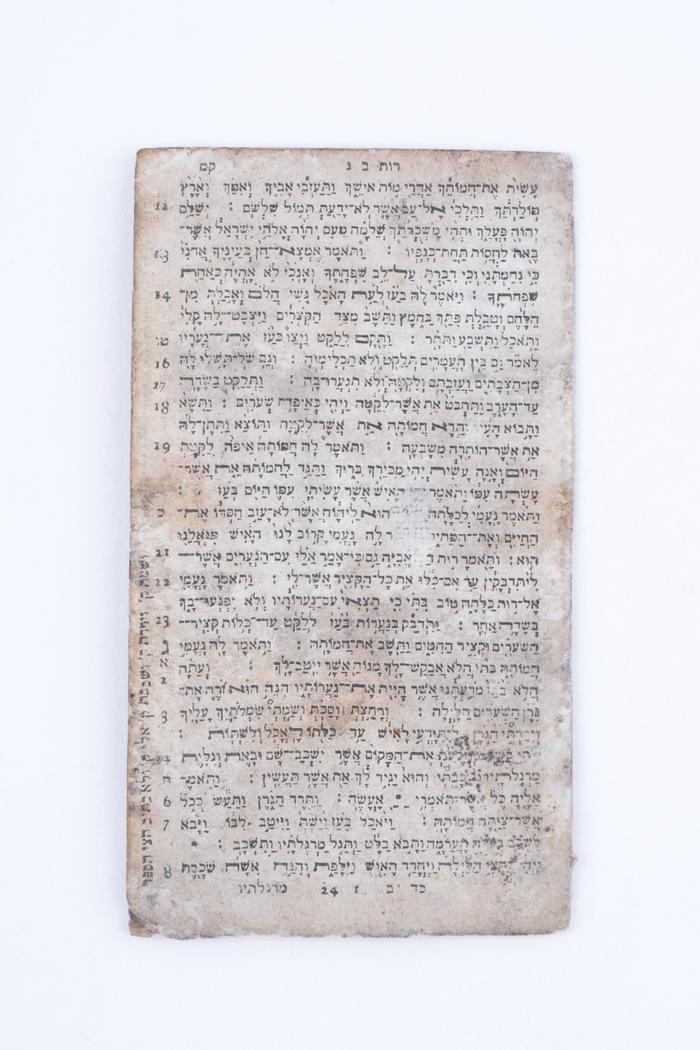 רות ב ג קמ
עשית את־חמותך אחרי מות אישך ותעזבי אביך ואמך וארץ
12 מולדתך ותלכי אל־עם אשר לא־ידעת תמול שלשום : ישלם
יהוה פעלך ותהי משכרתך שלמה מעם יהוה אלהי ישראל אשר־
13 באת לחסות תחת־כנפיו : ותאמר אמצא־חן בעיניך אדני
כי נחמתני וכי דברת על־לב שפחתך ואנכי לא אהיה כאחת
14 שפחתך : ויאמר לה בעז לעת האכל גשי הלם ואכלת מן־
הלחם וטבלת פתך בחמץ ותשב מצד הקצרים ויצבט־לה קלי
טו ותאכל ותשבע ותתר : ותקם ללקט ויצו בעז את־נעריו
16 לאמר גם בין העמרים תלקט ולא תכלימוה : וגם של־תשלו לה
17 מן־הצבתים ועזבתם ולקטה ולא תגערו־בה : ותלקט בשדה
18 עד־הערב ותחבט את אשר־לקטה ויהי כאיפה שערים : ותשא
ותבוא העיר ותרא חמותה את אשר־לקטה ותוצא ותתן־לה
19 את אשר־הותרה משבעה : ותאמר לה חמותה איפה לקטת
היום ואנה עשית יהי מכירך ברוך ותגד לחמותה את אשר־
עשתה עמו ותאמר האיש אשר עשיתי עמו היום בעז :
כ ותאמר נעמי לכלתה הוא ליהוה אשר לא־עזב חסדו את־
החיים ואת־המתי לה נעמי קרוב לנו האיש מגאלנו
21 הוא : ותאמר רות המואביה גם כי־אמר אלי עם־הנערים אשר־
22 לי תדבקין עד אם־כלו את כל־הקציר אשר־לי : ותאמר נעמי
אל־רות כלתה טוב בתי כי תצאי עם־נערותיו ולא יפגעו־בך
23 בשדה אחר : ותדבק בנערות בעז ללקט עד־כלות קציר־
ג השערים וקציר החטים ותשב את־חמותה : ותאמר לה נעמי
א חמותה בתי הלא אבקש־לך מנוח אשר ייטב־לך : ועתה
2 הלא בעז מדעתנו אשר היית את־נערותיו הנה הוא זרה את־
3 גרן השערים הלילה : ורחצת וסכת ושמת שמלתיך עליך
וירדתי הגרן אל־תודעי לאיש עד כלתו לאכל ולשתות :
4 ויהי בשכבו וידעת את־המקום אשר ישכב־שם ובאת וגלית
ה מרגלתיו ושכבתי והוא יגיד לך את אשר תעשין : ותאמר
6 אליה כל אשר־תאמרי אעשה : ותרד הגרן ותעש ככל
7 אשר־צותה חמותה : ויאכל בעז וישת וייטב לבו ויבא
לשכב בקצה הערמה ותבא בלט ותגל מרגלתיו ותשכב :
8 ויהי בחצי הלילה ויחרד האיש וילפת והנה אשה שכבת
כד יב 1 24 מרגלתיו